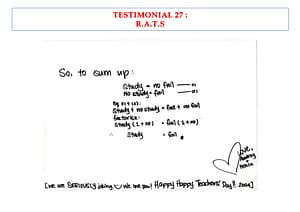 TESTIMONIAL 27 :
R.A.T.S
So, to sum up:
Study = no fail — (1)
No study = fail — (2)
By (1) + (2):
Study + no study = fail + no fail
factorise:
Study (1 + no) = fail (1 + no)
∴ Study = fail.
[we are SERIOUSLY joking We love you! Happy Happy Teachers' Day!! 2004]